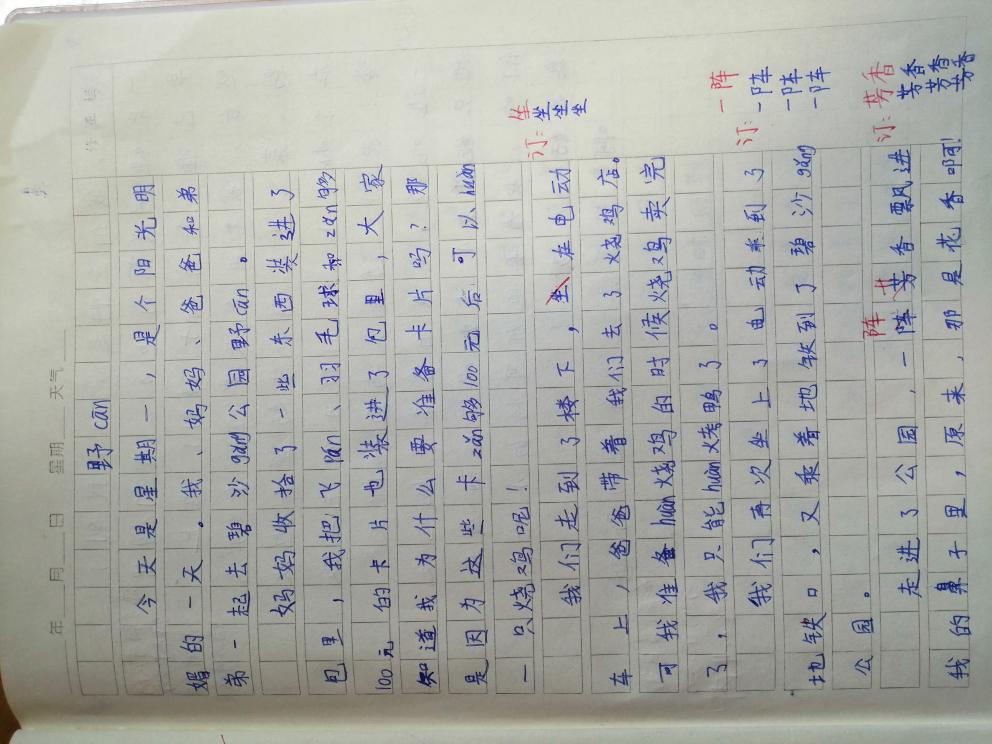 年 月 日 星期 天气
野cān
今天是星期一，是个阳光明
媚的一天。我、妈妈、爸爸和弟
弟一起去碧沙gǎng公园野cān。
妈妈收拾了一些东西装进了
包里，我把飞pán、羽毛球和zǎn够
100元的卡片也装进了包里，大家
知道我为什么要准备卡片吗？那
是因为这些卡zǎn够100元后可以huàn
一只烧鸡呢！
我们走到了楼下，坐在电动
订：坐
坐
坐
坐
车上，爸爸带着我们去了烧鸡店。
可我准备huàn烧鸡的时候烧鸡卖完
了，我只能huàn烤鸭了。
我们再次坐上了电动车到了
订：一阵
一阵
一阵
一阵
地铁口，又乘着地铁到了碧沙gǎng
公园。
走进了公园，一阵芳香飘进
阵
订：芳香
芳香
芳香
芳香
我的鼻子里，原来，那是花香啊！